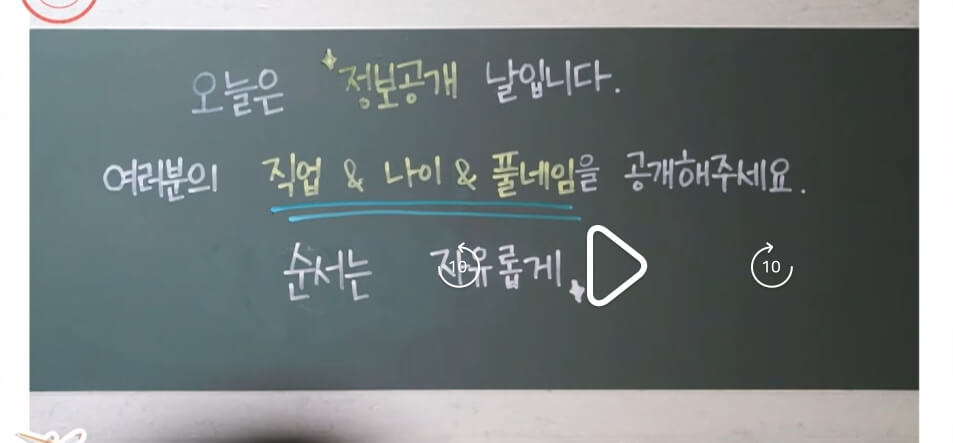 오늘은 정보공개 날입니다.
여러분의 직업 & 나이 & 풀네임을 공개해주세요.
순서는 자유롭게
10 10